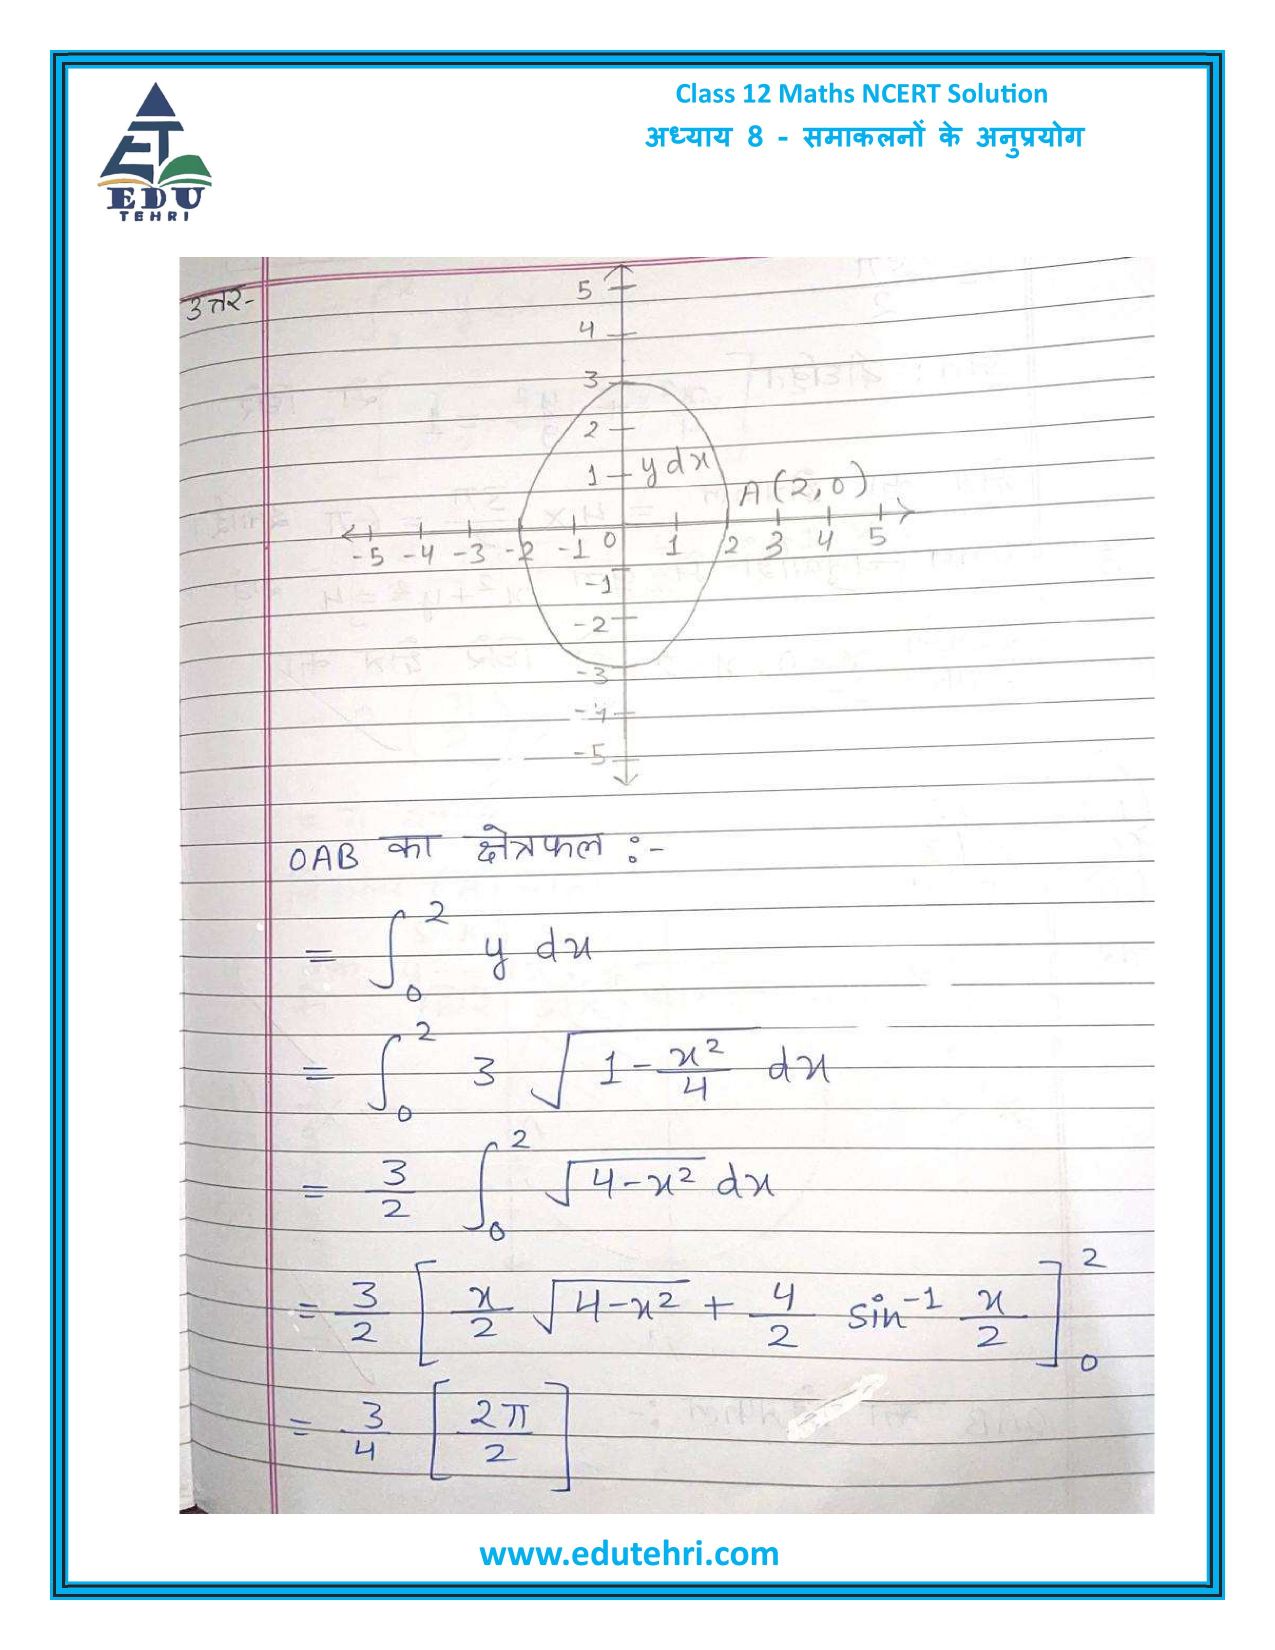 Class 12 Maths NCERT Solution
अध्याय 8 - समाकलनों के अनुप्रयोग
ET
EDU
TEHRI
उत्तर-
5
4
3
2
1 y dx
A (2,0)
-5 -4 -3 -2 -1 0 1 2 3 4 5
-1
-2
-3
-4
-5
OAB का क्षेत्रफल :-
= ∫₀² y dx
= ∫₀² 3 √(1 - x²/4) dx
= 3/2 ∫₀² √(4-x²) dx
= 3/2 [ x/2 √(4-x²) + 4/2 sin⁻¹ x/2 ]₀²
= 3/4 [ 2π/2 ]
www.edutehri.com